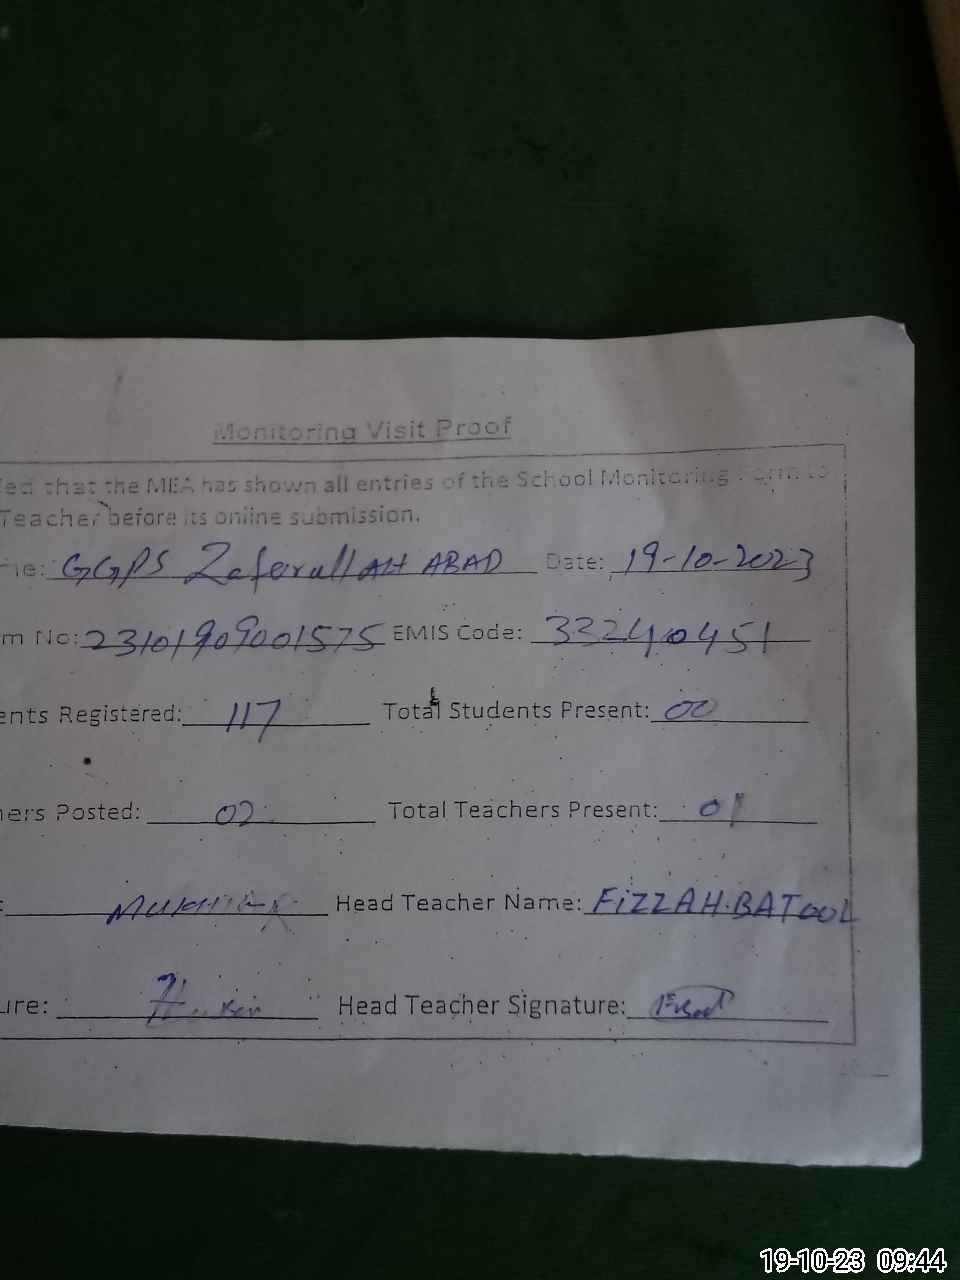 Monitoring Visit Proof
ed that the MEA has shown all entries of the School Monitoring Form to
Teacher before its online submission.
me: GGPS ZaferullAH ABAD Date: 19-10-2023
m No: 23101909001575 EMIS Code: 33240451
ents Registered: 117 Total Students Present: 00
ers Posted: 02 Total Teachers Present: 01
: Head Teacher Name: FiZZAH.BATOOL
ure: Head Teacher Signature:
19-10-23 09:44